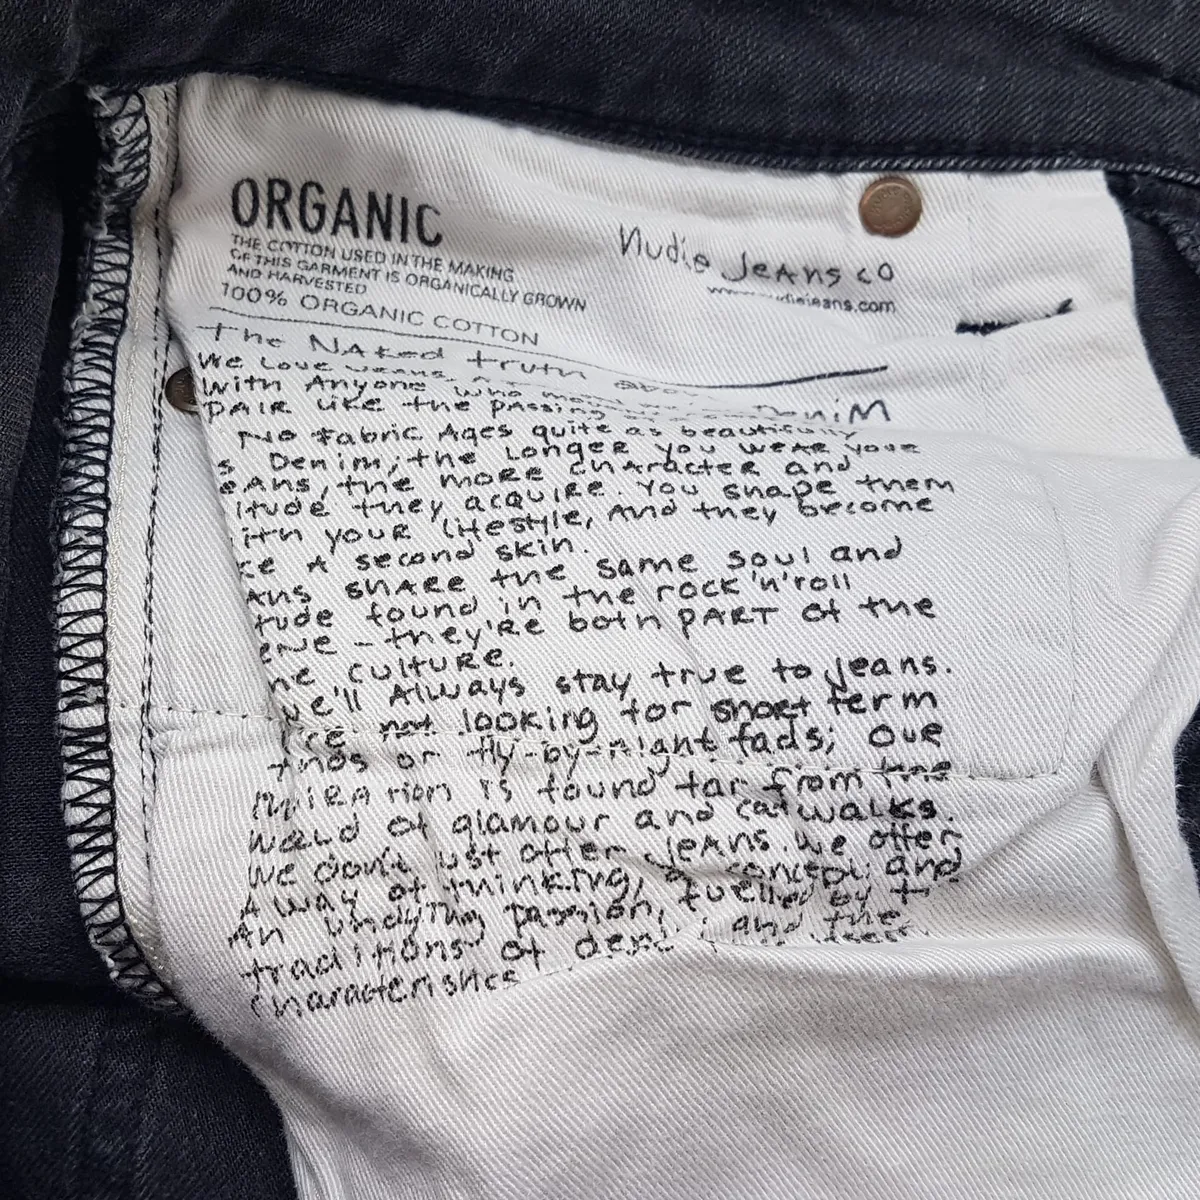 ORGANIC
THE COTTON USED IN THE MAKING
OF THIS GARMENT IS ORGANICALLY GROWN
AND HARVESTED
100% ORGANIC COTTON
Nudie Jeans co
diejeans.com
The NAked truth DeniM
We Love
with Anyone who
PAIR Like the passing
No Fabric Ages quite as beautifully
s Denim; the longer you wear your
eans, the more character and
itude they acquire. You shape them
ith your lifestyle, and they become
ke A second skin.
ans share the same soul and
tude found in the rock'n'roll
ene - they're both PART of the
me culture.
we'll Always stay true to jeans.
re not looking for short term
or fly-by-night fads; our
is found far from the
world of glamour and catwalks.
we don't ust offer jeans. we offer
A way of thinking, a concept and
An undying passion, fuelled by t
traditions of deni and the
characteristics